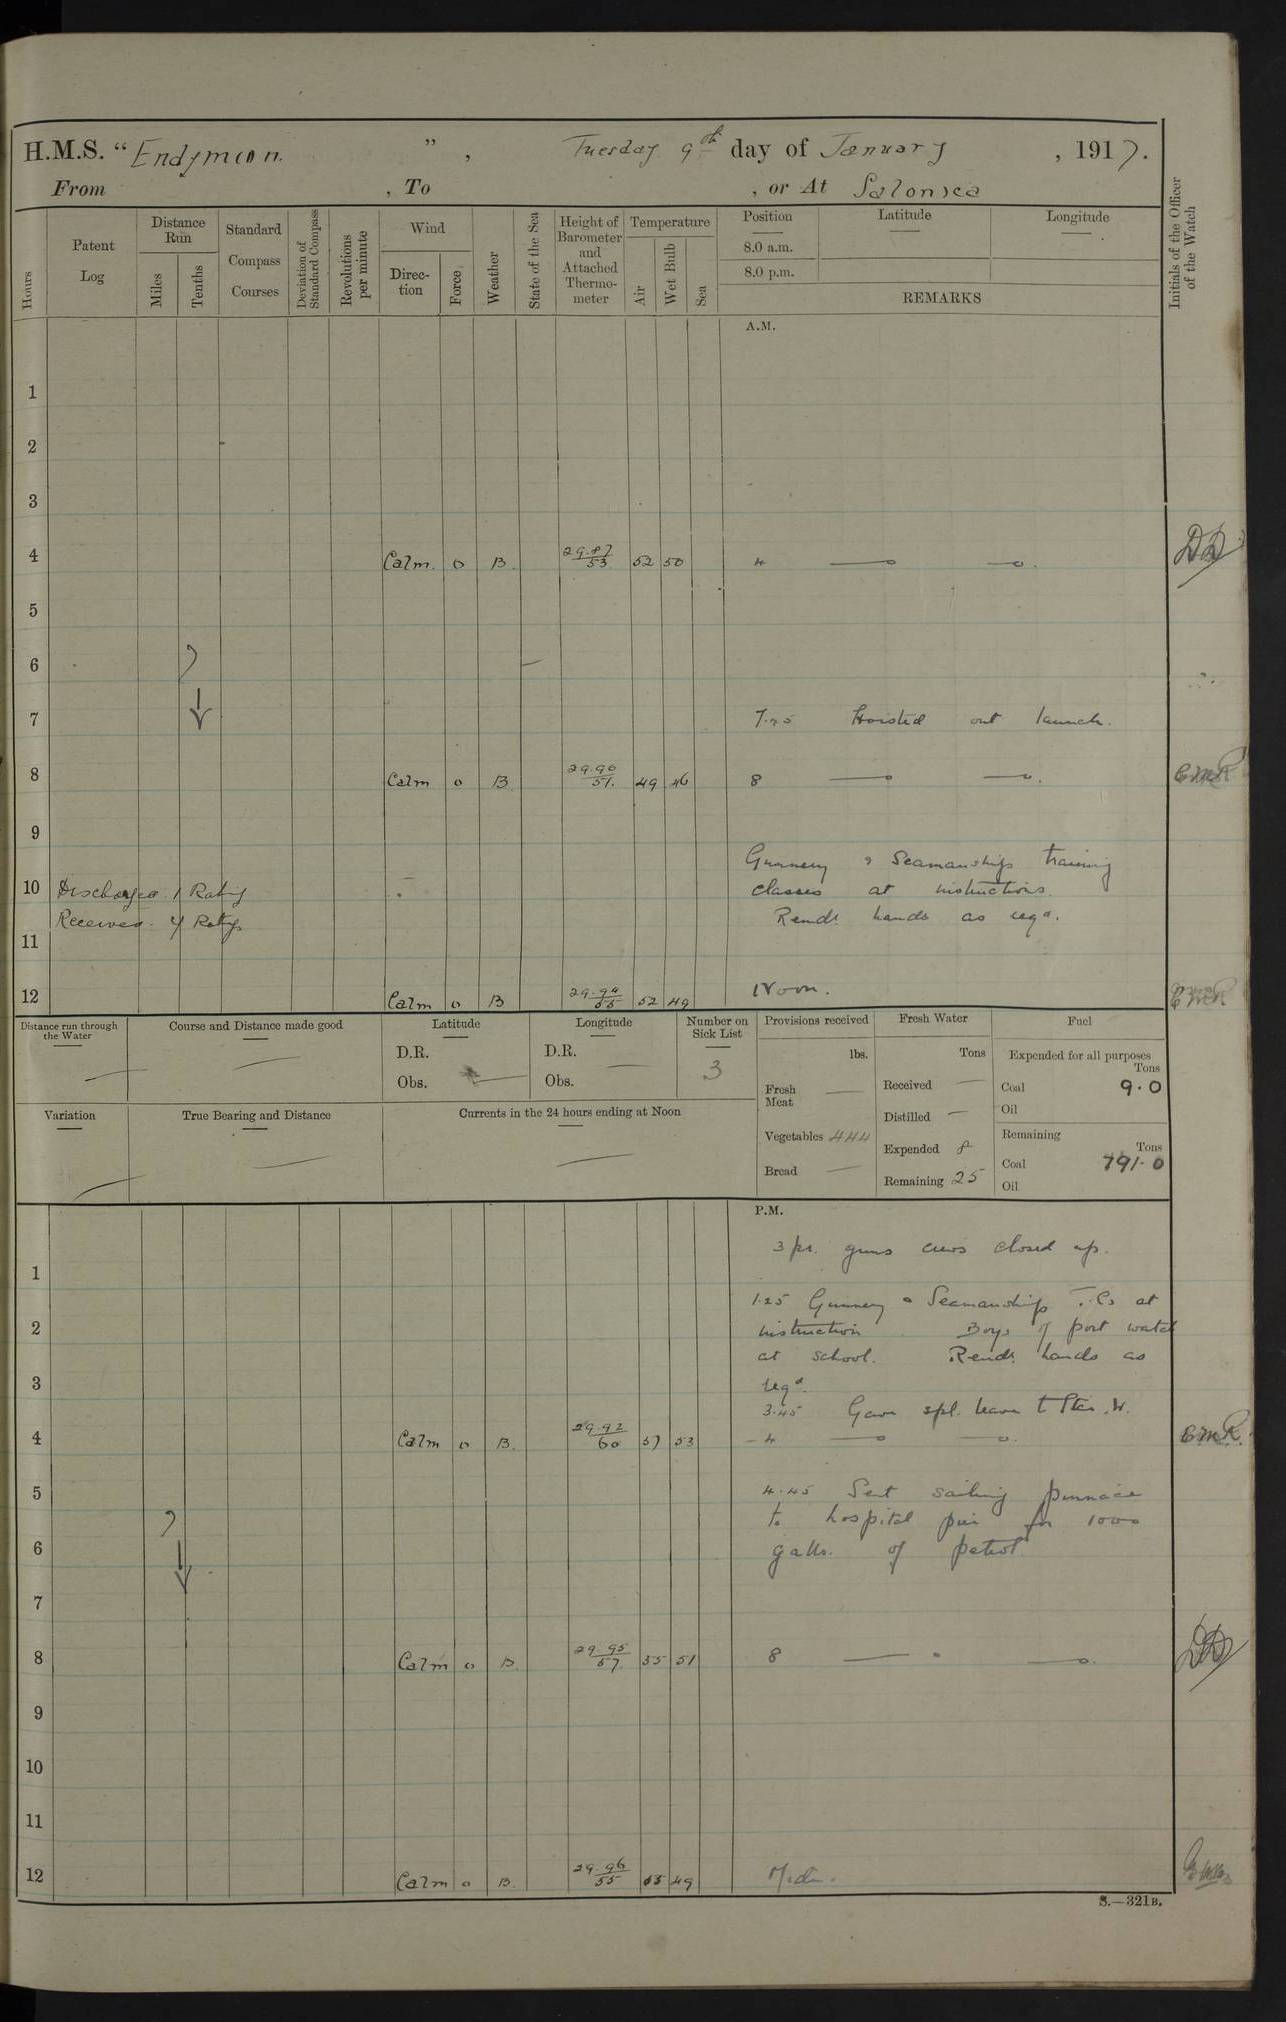 H.M.S. "Endymion.", Tuesday 9th day of January, 1917.
From , To , or At Salonica
Hours
Patent Log
Distance Run
Miles
Tenths
Standard Compass Courses
Deviation of Standard Compass
Revolutions per minute
Wind
Direction
Force
Weather
State of the Sea
Height of Barometer and Attached Thermometer
Temperature
Air
Wet Bulb
Sea
Position
8.0 a.m.
8.0 p.m.
Latitude
Longitude
REMARKS
Initials of the Officer of the Watch
A.M.
1
2
3
4 Calm. 0 B. 29.87 53 52 50 4 DD
5
6
7 Hoisted out launch.
8 Calm 0 B 29.90 51. 49 46 8 EMR
9
Gunnery & Seamanship training
10 Discharged 1 Rating classes at instructions.
Received 4 Ratgs Remdr hands as reqd.
11
12 Calm 0 B 29.94 55 52 49 Noon. EMR
Distance run through the Water
Course and Distance made good
Latitude
D.R.
Obs.
Longitude
D.R.
Obs.
Number on Sick List
3
Provisions received
lbs.
Fresh Meat
Vegetables 444
Bread
Fresh Water
Tons
Received
Distilled
Expended 8
Remaining 25
Fuel
Expended for all purposes
Tons
Coal 9.0
Oil
Remaining
Tons
Coal 791.0
Oil
Variation
True Bearing and Distance
Currents in the 24 hours ending at Noon
P.M.
3 pr. guns crews closed up.
1
1.25 Gunnery & Seamanship T.Cs at
2 instruction Boys of port watch
at school. Remdr hands as
3 reqd.
3.45 Gave spl. leave to
4 Calm 0 B. 29.92 60 57 53 4 EMR.
5 4.45 Sent sailing pinnace
to hospital pier for 1000
6 galls. of petrol.
7
8 Calm 0 B. 29.95 57. 55 51 8 DD
9
10
11
12 Calm 0 B. 29.96 55 53 49 Midt.
S.—321B.